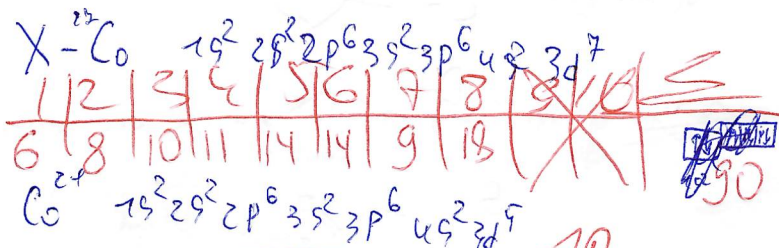 X - ²⁷Co 1s² 2s² 2p⁶ 3s² 3p⁶ 4s² 3d⁷
1 2 3 4 5 6 7 8 9 10 Σ
6 8 10 11 14 14 9 18 90
Co²⁺ 1s² 2s² 2p⁶ 3s² 3p⁶ 4s² 3d⁵